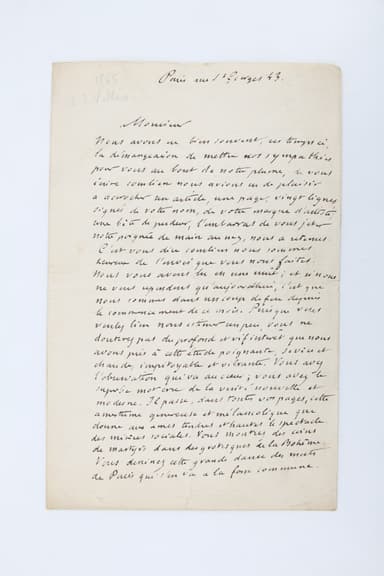 Paris rue St Georges 43.
Monsieur
Nous avons eu bien souvent, ces temps ci,
la démangeaison de mettre nos sympathies
pour vous au bout de notre plume, de vous
écrire combien nous avions eu de plaisir
à accrocher un article, une page, vingt lignes
signés de votre nom, de votre marque d'artiste
une bête de pudeur, l'embarras de vous jeter
notre poignée de main au nez, nous a retenus.
C'est vous dire combien nous sommes
heureux de l'envoi que vous nous faites.
Nous vous avons lu en une nuit; et si nous
ne vous répondons qu'aujourd'hui, c'est que
nous sommes dans un coup de feu depuis
le commencement de ce mois. Puisque vous
voulez bien nous estimer un peu, vous ne
doutez pas du profond et vif intérêt que nous
avons pris à cette étude poignante, serrée et
chaude, impitoyable et vibrante. Vous avez
l'observation qui va au cœur; vous avez le
mot de la vérité nouvelle et
moderne. Il passe, dans toutes vos pages, cette
amertume généreuse et mélancolique que
donne aux âmes tendres et hautes le spectacle
des misères sociales. Vous montrez des coins
de martyrs dans des grotesques de la Bohême.
Vous dessinez cette grande danse des morts
de Paris qui s'en va à la fosse commune.